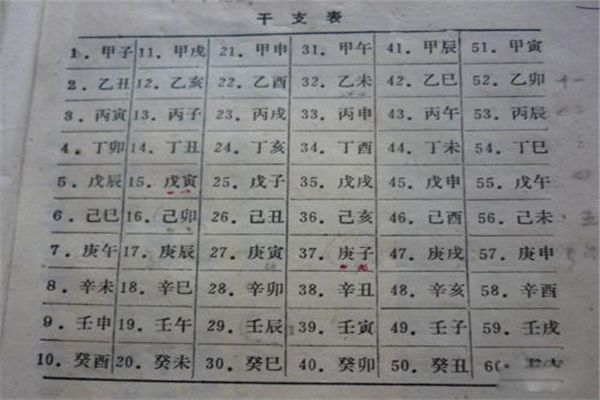 干支表
1．甲子 11．甲戌 21．甲申 31．甲午 41．甲辰 51．甲寅
2．乙丑 12．乙亥 22．乙酉 32．乙未 42．乙巳 52．乙卯
3．丙寅 13．丙子 23．丙戌 33．丙申 43．丙午 53．丙辰
4．丁卯 14．丁丑 24．丁亥 34．丁酉 44．丁未 54．丁巳
5．戊辰 15．戊寅 25．戊子 35．戊戌 45．戊申 55．戊午
6．己巳 16．己卯 26．己丑 36．己亥 46．己酉 56．己未
7．庚午 17．庚辰 27．庚寅 37．庚子 47．庚戌 57．庚申
8．辛未 18．辛巳 28．辛卯 38．辛丑 48．辛亥 58．辛酉
9．壬申 19．壬午 29．壬辰 39．壬寅 49．壬子 59．壬戌
10．癸酉 20．癸未 30．癸巳 40．癸卯 50．癸丑 60